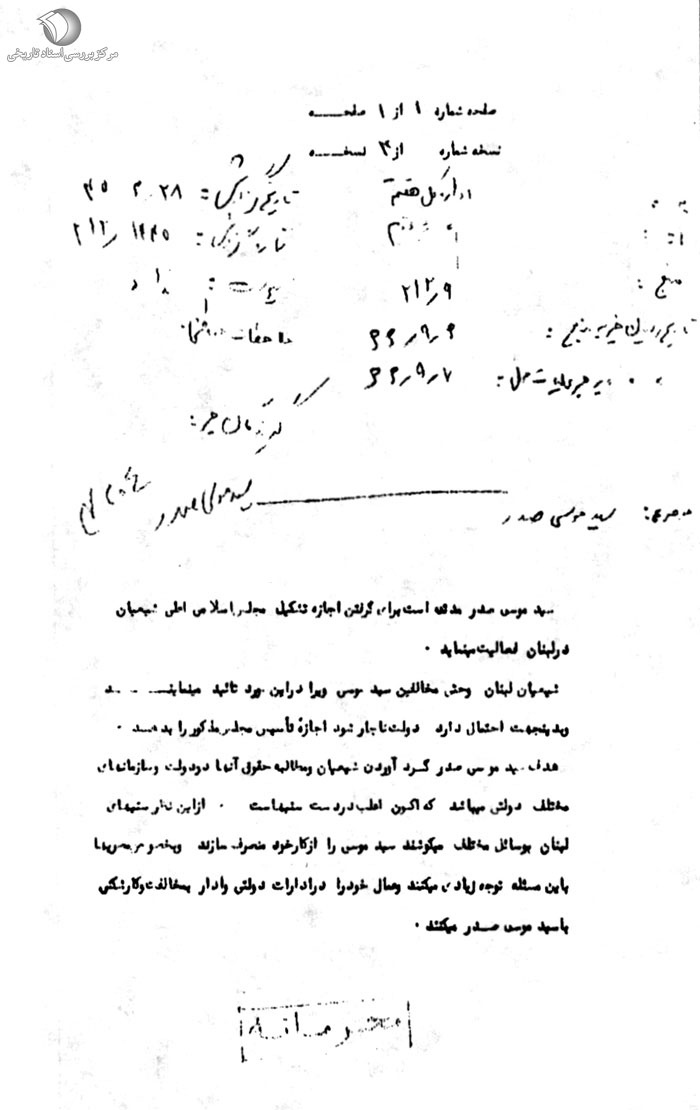 مرکز بررسی اسناد تاریخی
صفحه شماره ۱ از ۱ صفحـــه
نسخه شماره از ۳ نسخـــه
اداره کل هفتم
تاریخ گزارش : ۲۸ ر ۲ ر ۴۵
شماره گزارش :
منبع : ۲۱۲٫۹
تاریخ رسیدن خبر به منبع :
ملاحظات حفاظتی :
گیرندگان خبر :
موضوع : سید موسی صدر
سید موسی صدر
سید موسی صدر مدتی است برای گرفتن اجازه تشکیل مجلس اسلامی اعلی شیعیان
درلبنان فعالیت مینماید .
شیعیان لبنان وحتی مخالفین سید موسی ویرا دراین مورد تائید مینمایند
وبدینجهت احتمال دارد دولت ناچار شود اجازهٔ تأسیس مجلس مذکور را بدهد .
هدف سید موسی صدر گرد آوردن شیعیان ومطالبه حقوق آنها دردولت وسازمانهای
مختلف دولتی میباشد که اکنون اغلب دردست سنیهاست . ازاین نظر سنیهای
لبنان بوسائل مختلف میکوشند سید موسی را ازکارخود منصرف سازند وبخصوص مصریها
باین مسئله توجه زیادی میکنند وعمال خودرا درادارات دولتی وادار بمخالفت وکارشکنی
باسید موسی صدر میکنند .
محرمانه